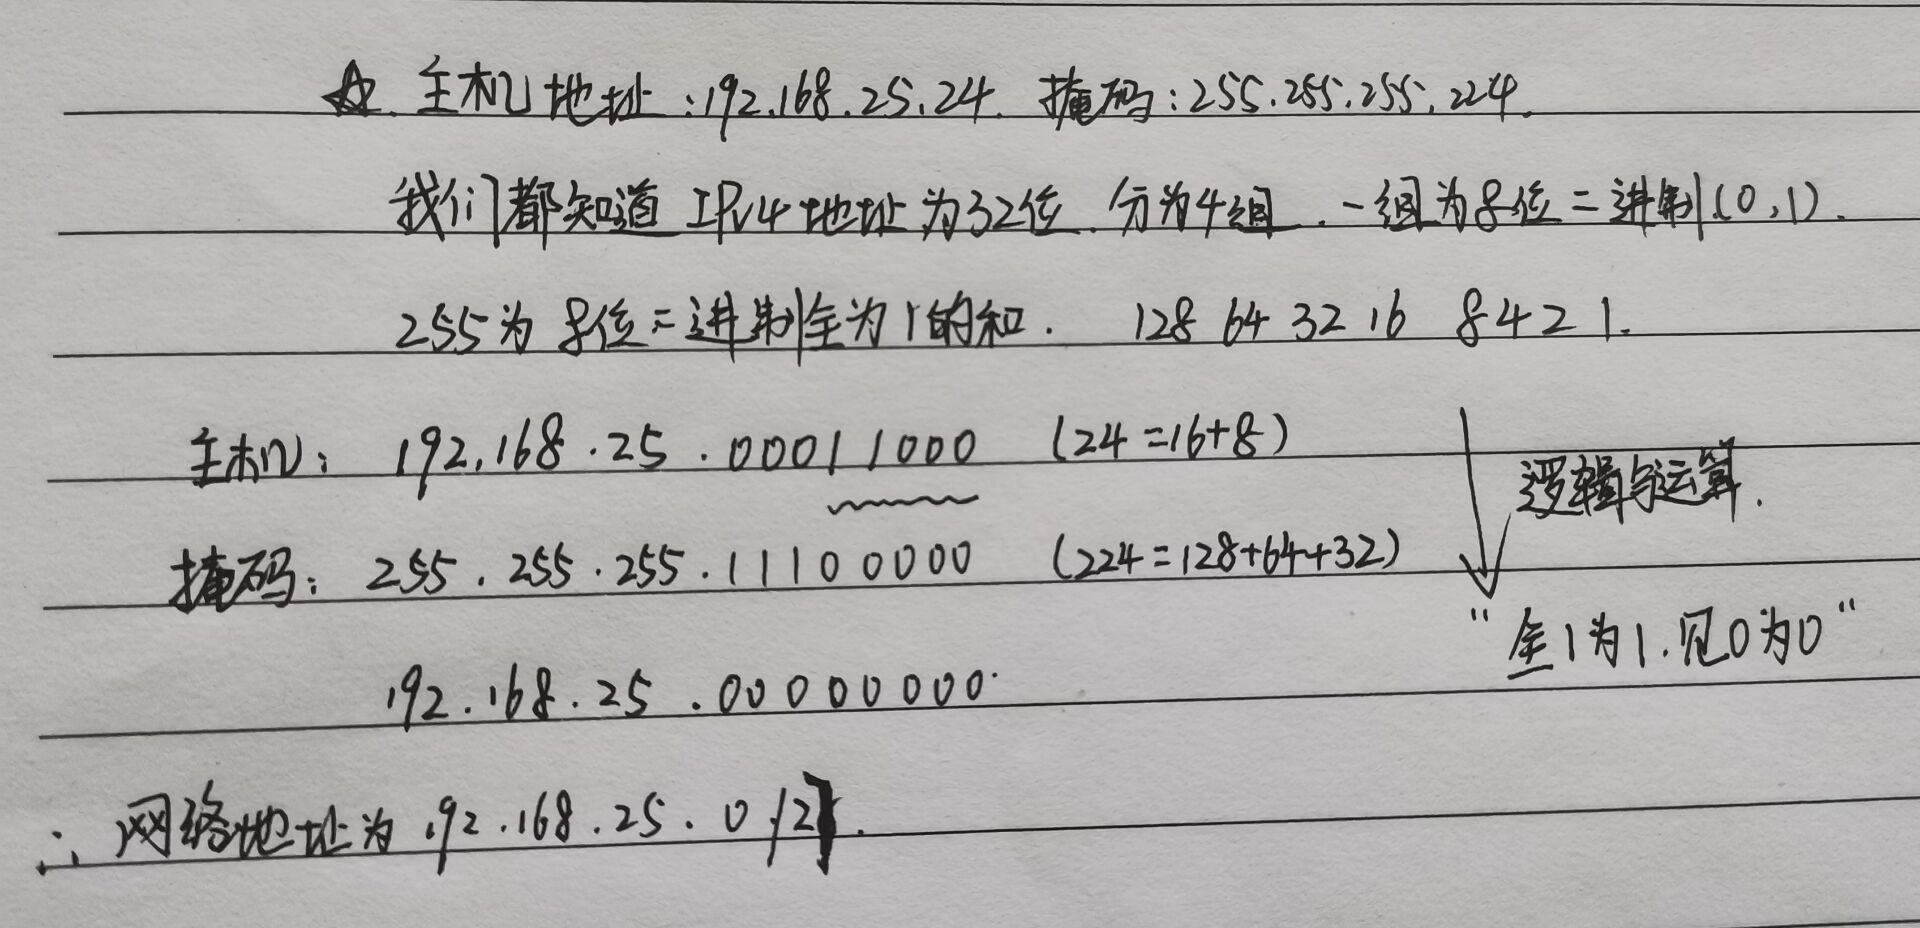 ☆. 主机地址:192.168.25.24. 掩码:255.255.255.224.
我们都知道 IPv4地址为32位.分为4组.一组为8位二进制(0,1).
255为8位二进制全为1的和. 128 64 32 16 8 4 2 1.
主机: 192.168.25.00011000 (24=16+8)
逻辑与运算.
掩码: 255.255.255.11100000 (224=128+64+32)
"全1为1.见0为0"
192.168.25.00000000.
∴网络地址为192.168.25.0/27.